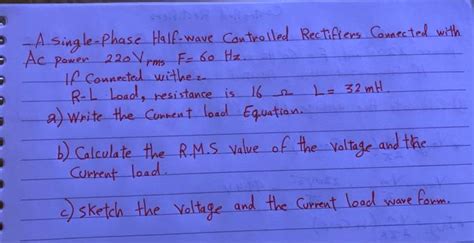 - A Single-Phase Half-wave Controlled Rectifiers Connected with
AC power 220 Vrms F= 60 Hz.
If Connected withe :
R-L Load, resistance is 16 Ω L= 32 mH.
a) Write the Current load Equation.
b) Calculate the R.M.S value of the voltage and the
Current load.
c) sketch the voltage and the Current load wave form.